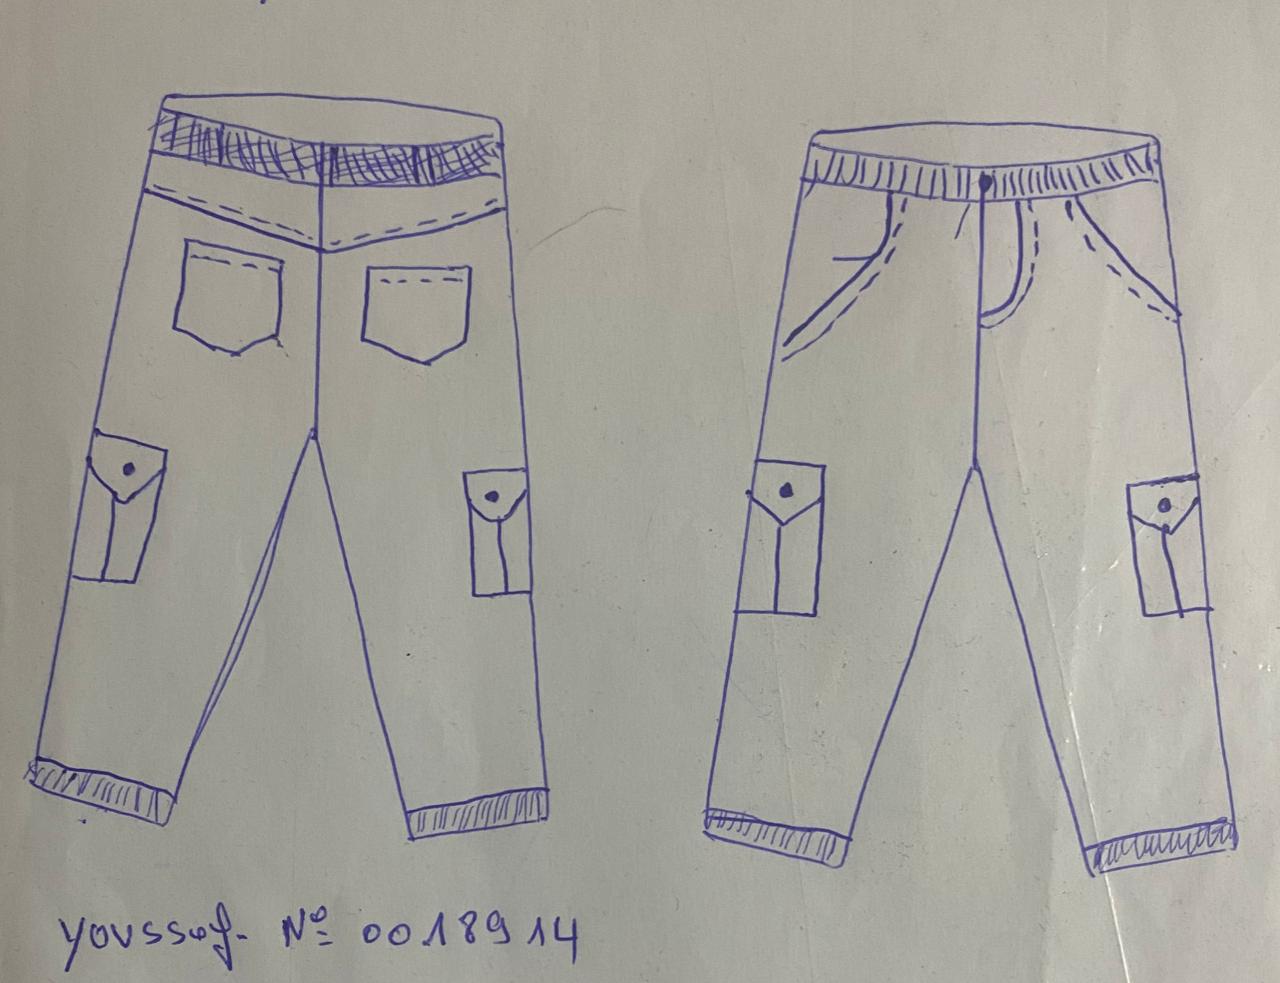 Youssef. Nº 0018914